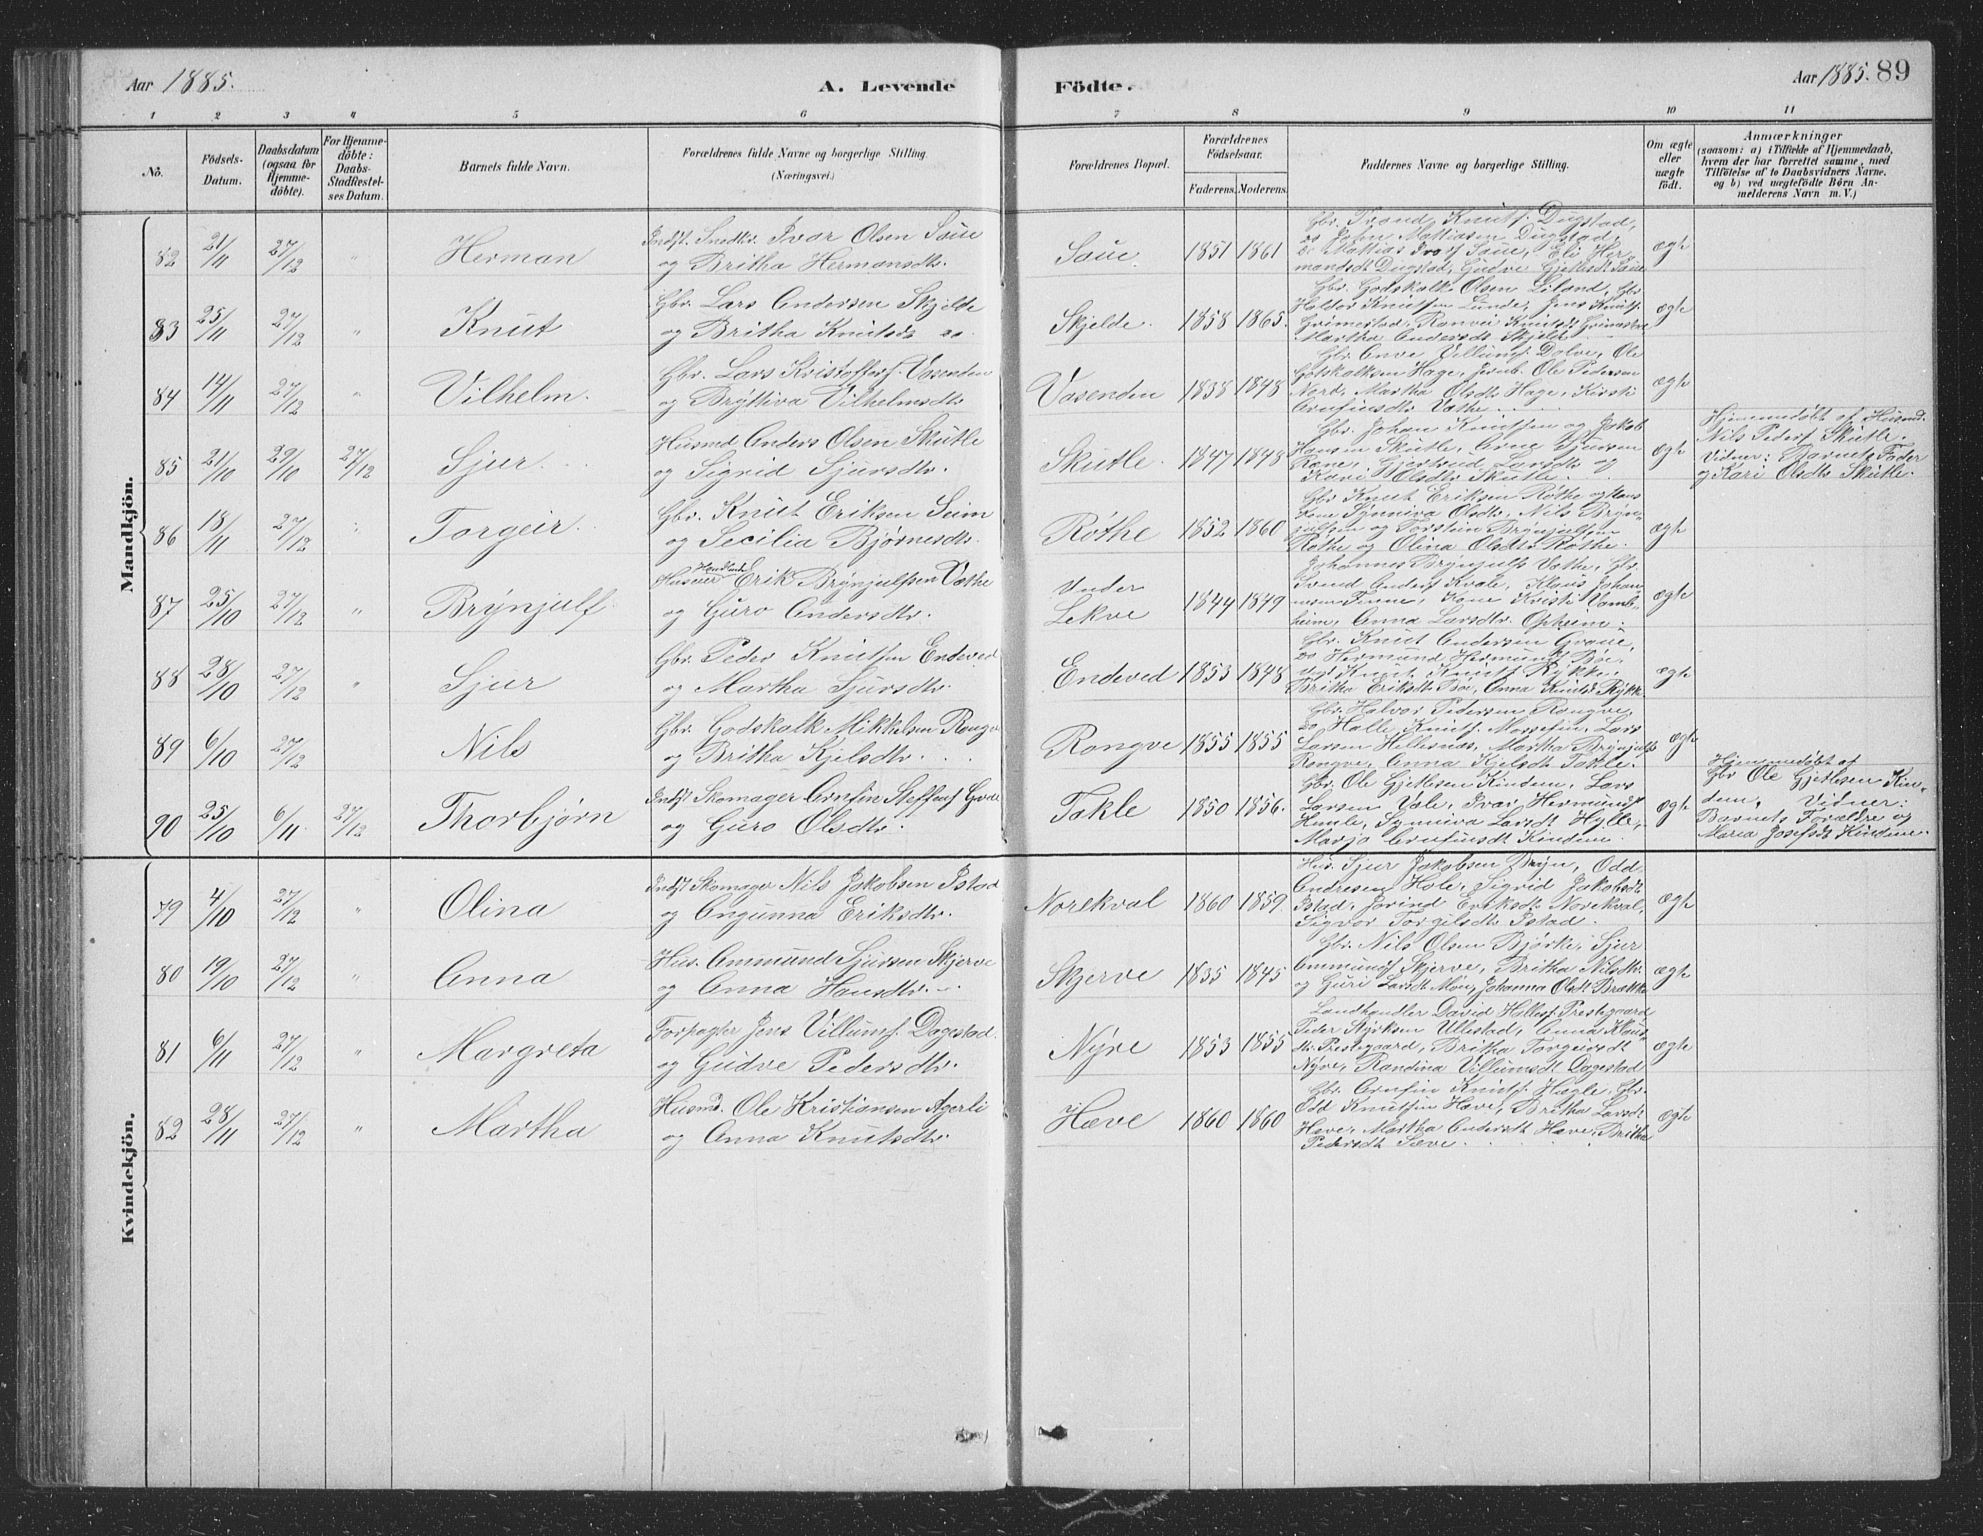 Aar 1885.
A. Levende Födte.
Aar 1885. 89
1 2 3 4 5 6 7 8 9 10 11
No.
Födsels-Datum.
Daabsdatum (ogsaa for Hjemmedöbte).
For Hjemmedöbte: Daabs-Stadfæstelses Datum.
Barnets fulde Navn.
Forældrenes fulde Navne og borgerlige Stilling (Næringsvei.)
Forældrenes Bopæl.
Forældrenes Födselsaar.
Faderens. Moderens.
Faddernes Navne og borgerlige Stilling.
Om ægte eller uægte födt.
Anmærkninger
(saasom: a) i Tilfælde af Hjemmedaab,
hvem der har forrettet samme, med
Tilföielse af to Daabsvidners Navne.
og b) ved uægtefödte Börn An-
melderens Navn m. V.)
Mandkjön.
82 21/11 27/12 " Herman
Indst. Snedkr. Ivar Olsen Saue
og Britha Hermansdtr.
Saue 1851 1861
Gbr. Trond Knutsf. Dugstad,
do John Mathiasen Dugstad,
do Mathias Ivarsf. Saue, Eli Her-
mansdt Dugstad, Gudve Gjetlesdt Saue
ægte
83 25/11 27/12 " Knut
Gbr. Lars Andersen Skjelde
og Britha Knutsdt do.
Skjelde. 1858 1865.
Gbr. Godskalk Olsen Liland, Gbr
Haldor Knutsen Lunde, Jens Knutsf.
Grimestad, Ranvei Knutsdt Grimestad
Martha Andersdt Skjelde
ægte
84 14/11 27/12 " Vilhelm.
Gbr. Lars Kristoffersf. Vasenden
og Bryttiva Vilhelmsdtr
Vasenden 1838 1848
Gbr. Anve Villumsf. Dolve, Ole
Gotskalksen Hage, Ole Pedersen
Nord, Martha Olsdt Hage, Kirsti
Arnfinsdtr Væthe
ægte
85 21/10 29/10 27/12 Sjur.
Husmd Anders Olsen Skutle
og Sigrid Sjursdtr.
Skutle. 1847 1848
Gbr. Johan Knutsen og Jakob
Hansen Skutle, Arne Sjursen
Rone, Gjertrud Larsdtr og
Kari Olsdtr Skutle.
ægte
Hjemmedøbt af Husmd.
Nils Pedersf. Skutle.
Vidner: Barnets Fader
og Kari Olsdtr Skutle.
86 18/11 27/12 " Torgeir
Gbr. Knut Eriksen Seim
og Secilia Bjørnesdtr.
Røthe 1852 1860
Gbr Knut Eriksen Røthe og Hans
Kone Synniva Olsdtr, Nils Brynjulfsen og Torstein Brynjulfsen
Røthe og Olina Olsdtr Røthe.
ægte
87 25/10 27/12 " Brynjulf
Huseier Erik Brynjulfsen Væthe
og Guro Andersdtr.
Under Lekve 1844 1849
Johannes Brynjulfs Vethe, Gbr.
Svend Andersf Kvale, Klaus Johan-
nesen Finne, Kone Kristi Vamb-
heim, Anna Larsdtr. Opheim.
ægte
88 28/10 27/12 " Sjur
Gbr. Peder Knutsen Endeved
og Martha Sjursdtr.
Endeved 1853 1848
Gbr. Knut Andersen Grove,
do Hermund Hermundsf Bøe,
Knut Knutsf Rykke,
Britha Eriksdt Bø, Anna Knutsdt Rykke
ægte
89 6/10 27/12 Nils
Gbr. Godskalk Mikkelsen Rongve
og Britha Kjelsdtr.
Rongve 1855 1855
Gbr. Halvor Pedersen Rongve,
do Halle Knutsf. Mossefin, Lars
Larsen Hellesnæs, Martha Brynjulfsdt
Rongve, Anna Kjelsdt Takle.
ægte
90 25/10 6/11 27/12 Thorbjørn
Indst Skomager Arnfin Steffensf Gjerde
og Guro Olsdtr.
Takle 1850 1856.
Gbr. Ole Gjetlesen Kindem, Lars
Larsen Vale, Ivar Hermundsf
Humle, Synniva Larsdt Hylle,
Marjo Arnfinsdt Kindem
ægte
Hjemmedøbt af
Gbr Ole Gjetlesen Kin-
dem, Vidner:
Barnets Forældre og
Maria Josefsdt Kindem.
Kvindekjön.
79 4/10 27/12 " Olina
Indst Skomager Nils Jakobsen Istad
og Angunna Eriksdtr.
Norekval 1860 1859
Hus. Sjur Jakobsen Bryn, Odd
Andresen Hole, Sigrid Jakobsdt
Istad, Jorind Eriksdt Norekval,
Sigvor Torgilsdtr Istad.
ægte
80 19/10 27/12 " Anna
Hus. Ammund Sjursen Skjerve
og Anna Hansdtr.
Skjerve 1835 1845
Gbr. Nils Olsen Bjørke, Sjur
Ammundsf Skjerve, Britha Nilsdtr
og Guri Larsdt Møn, Johanna Olsdt Brække
ægte
81 6/11 27/12 " Margreta
Forpagter Jens Villumsf. Dagestad
og Gudve Pedersdtr.
Nyre 1853 1855
Landhandler David Hallesf Prestegaard
Peder Styrksen Ullestad, Anna Klaus-
dtr. Prestegaard, Britha Torgeirsdt
Nyre, Randina Villumsdt Dagestad
ægte
82 28/11 27/12 " Martha
Husmd. Ole Kristiansen Agerli
og Anna Knutsdtr.
Hæve 1860 1860
Gbr. Arnfin Knutsf. Hagle, Gbr.
Odd Knutsen Hæve, Britha Larsdt
Hæve, Martha Andersdt Hæve, Britha
Pedersdt Sæve
ægte